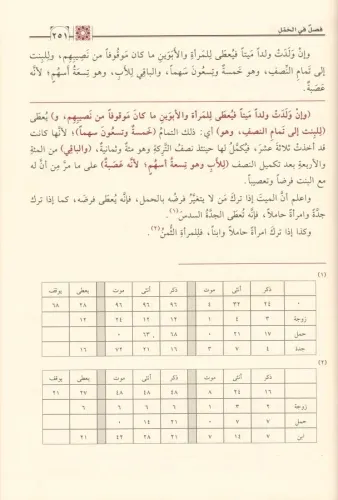 فصلٌ في الحَمْل
٢٥١
وإنْ وَلَدَتْ ولداً ميتاً فيُعطَى للمَرأةِ والأبَوَينِ ما كان مَوقُوفاً من نَصِيبِهِم، وللبِنت
إلى تَمامِ النِّصفِ، وهو خَمسةٌ وتِسعُونَ سَهماً، والباقِي للأبِ، وهو تِسعَةُ أسهُمٍ؛ لأنَّه
عَصَبةٌ.
(وإنْ وَلَدَتْ ولداً ميتاً فيُعطَى للمَرأةِ والأبَوَينِ ما كَانَ مَوقُوفاً من نَصِيبِهِم، و) يُعطَى
(لِلبِنتِ إلى تَمامِ النِّصفِ، وهو) أي: ذلك التمامُ (خَمسةٌ وتِسعونَ سَهماً)؛ لأنَّها كانت
قد أخذَتْ ثلاثةَ عشَرَ، فيَكمُلُ لها حينئذ نصفُ التَّرِكةِ وهو مئةٌ وثمانيةٌ، (والباقِي) من المئةِ
والأربعةِ بعد تكميل النصف (لِلأبِ وهو تِسعةُ أسهُمٍ؛ لأنَّه عَصَبةٌ) على ما مرَّ مِن أنَّ له
مع البنت فرضاً وتعصيباً.
واعلم أنَّ الميت إذا تركَ مَن لا يتغيَّرُ فرضُه بالحمل، فإنَّه يُعطَى فرضَه، كما إذا تركَ
جدَّةً وامرأةً حاملاً، فإنَّه تُعطَى الجدَّةُ السدسَ(١).
وكذا إذا ترك امرأةً حاملاً وابناً، فلِلمرأةِ الثُّمنُ(٢).
(١)
ذكر أنثى موت ذكر أنثى موت يعطى يوقف
٠ ٢٤ ٣٢ ٤ ٩٦ ٩٦ ٩٦ ٢٨ ٦٨
زوجة ٣ ٤ ١ ١٢ ١٢ ٢٤ ١٢
حمل ١٧ ٢١ ٠ ٦٨ ٦٣ ٠
جدة ٤ ٧ ٣ ١٦ ٢١ ٧٢ ١٦
(٢)
ذكر أنثى موت ذكر أنثى موت يعطى يوقف
١٦ ٢٤ ٨ ٤٨ ٤٨ ٤٨ ٢٧ ٢١
زوجة ٢ ٣ ١ ٦ ٦ ٦ ٦
حمل ٧ ٧ ٠ ٢١ ١٤ ٠
ابن ٧ ١٤ ٧ ٢١ ٢٨ ٤٢ ٢١